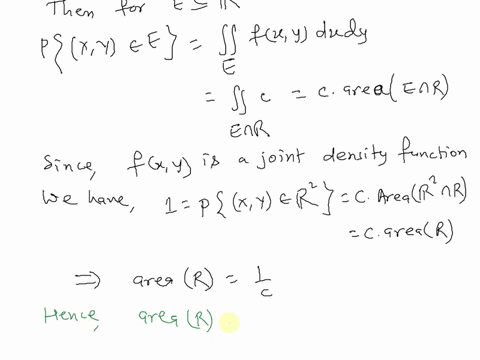 Then for E ⊆ ℝ
P{(X,Y) ∈ E} = ∬_E f(x,y) dxdy
= ∬_{E∩R} c = c. area(E∩R)
Since, f(x,y) is a joint density function
We have, 1 = P{(X,Y) ∈ ℝ²} = C. Area(ℝ²∩R)
= c. area(R)
⇒ area(R) = 1/c
Hence, area(R)